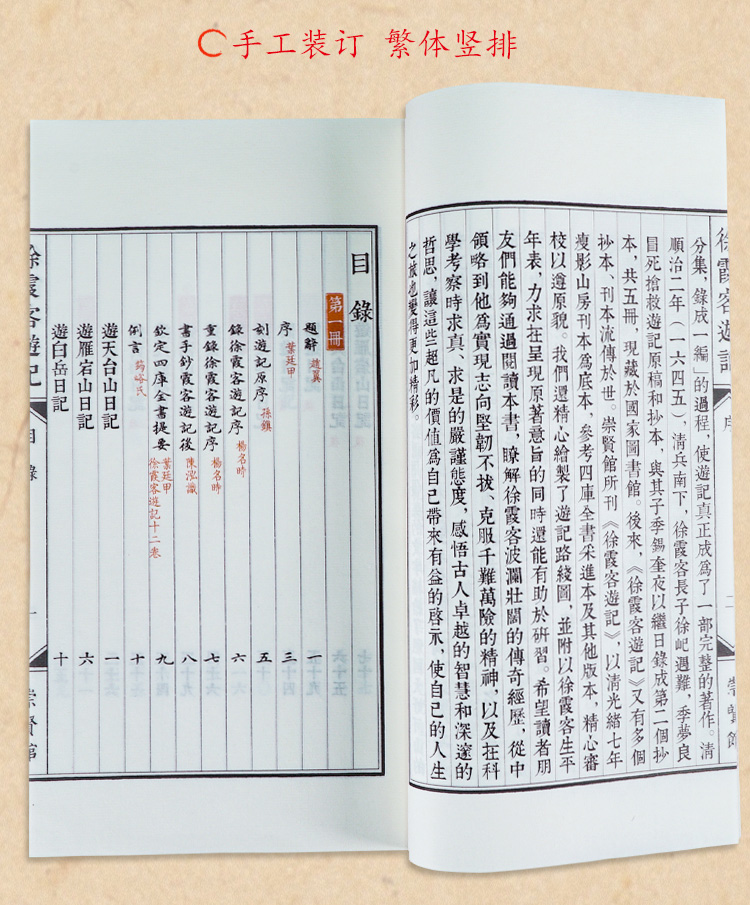 手工装订 繁体竖排
徐霞客遊記 序 二 崇賢館
分集,錄成一編」的過程,使遊記真正成爲了一部完整的著作。清
順治二年(一六四五),清兵南下,徐霞客長子徐屺遇難,季夢良
冒死搶救遊記原稿和抄本,與其子季錫奎夜以繼日錄成第二個抄
本,共五冊,現藏於國家圖書館。後來,《徐霞客遊記》又有多個
抄本、刊本流傳於世。崇賢館所刊《徐霞客遊記》,以清光緒七年
瘦影山房刊本爲底本,參考四庫全書采進本及其他版本,精心審
校以遵原貌。我們還精心繪製了遊記路綫圖,並附以徐霞客生平
年表,力求在呈現原著意旨的同時還能有助於研習。希望讀者朋
友們能夠通過閱讀本書,瞭解徐霞客波瀾壯闊的傳奇經歷,從中
領略到他爲實現志向堅韌不拔、克服千難萬險的精神,以及在科
學考察時求真、求是的嚴謹態度,感悟古人卓越的智慧和深邃的
哲思,讓這些超凡的價值爲自己帶來有益的啓示,使自己的人生
之旅也變得更加精彩。
目錄
第一冊
題辭 趙翼 一
序 葉廷甲 三
刻遊記原序 孫鎮 五
錄徐霞客遊記序 楊名時 六
重錄徐霞客遊記序 楊名時 七
書手鈔徐霞客遊記後 陳泓識 八
欽定四庫全書提要 葉廷甲徐霞客遊記十二卷 九
例言 筠峪氏 十
遊天台山日記 一
遊雁宕山日記 六
遊白岳日記 十
徐霞客遊記 目錄 一 崇賢館